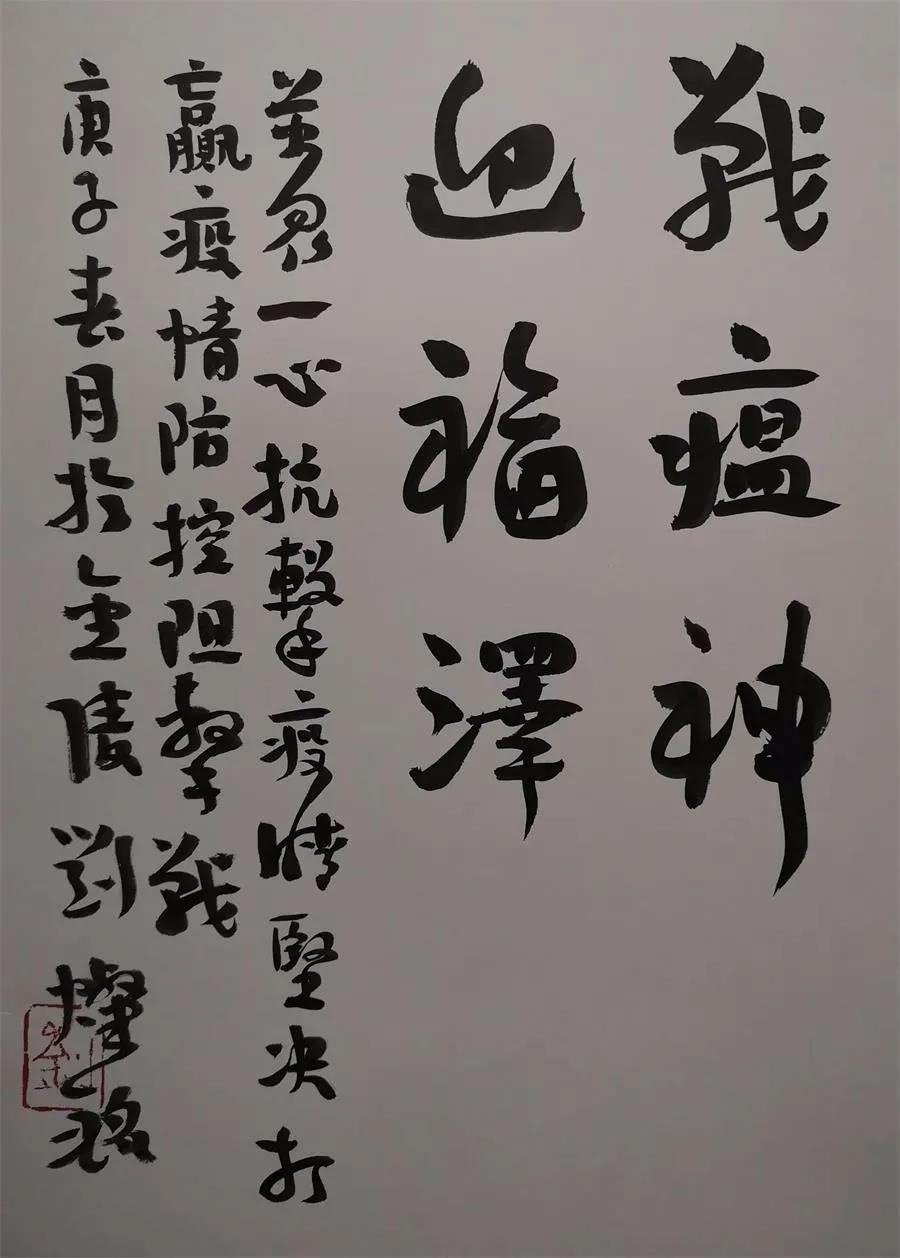 戰瘟神
迎福澤
萬眾一心抗擊疫情堅决打
贏疫情防控阻擊戰
庚子春月於金陵劉燦銘